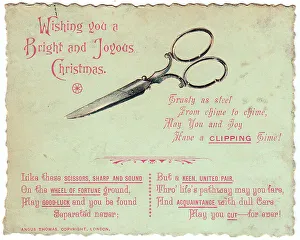 Wishing you a
Bright and Joyous
Christmas.
Trusty as steel
From chime to chime,
May You and Joy
Have a CLIPPING Time!
Like these SCISSORS, SHARP AND SOUND
On the WHEEL OF FORTUNE ground,
May GOOD LUCK and you be found
Separated never;
But a KEEN, UNITED PAIR,
Thro' life's pathway may you fare,
And ACQUAINTANCE with dull Care
May you CUT—for ever!
ANGUS THOMAS, COPYRIGHT, LONDON.